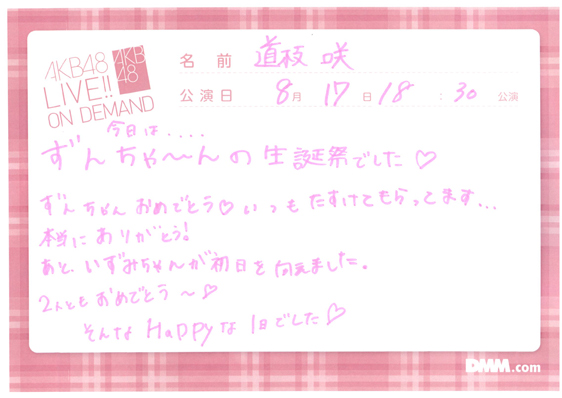 AKB48
LIVE!!
ON DEMAND
AKB
48
名前 道枝 咲
公演日 8月 17日 18 : 30 公演
今日は....
ずんちゃ〜んの生誕祭でした♡
ずんちゃんおめでとう♡いつもたすけてもらってます...
本当にありがとう!
あと、いずみちゃんが初日を向えました。
2人ともおめでとう〜♡
そんなHappyな1日でした♡
DMM.com